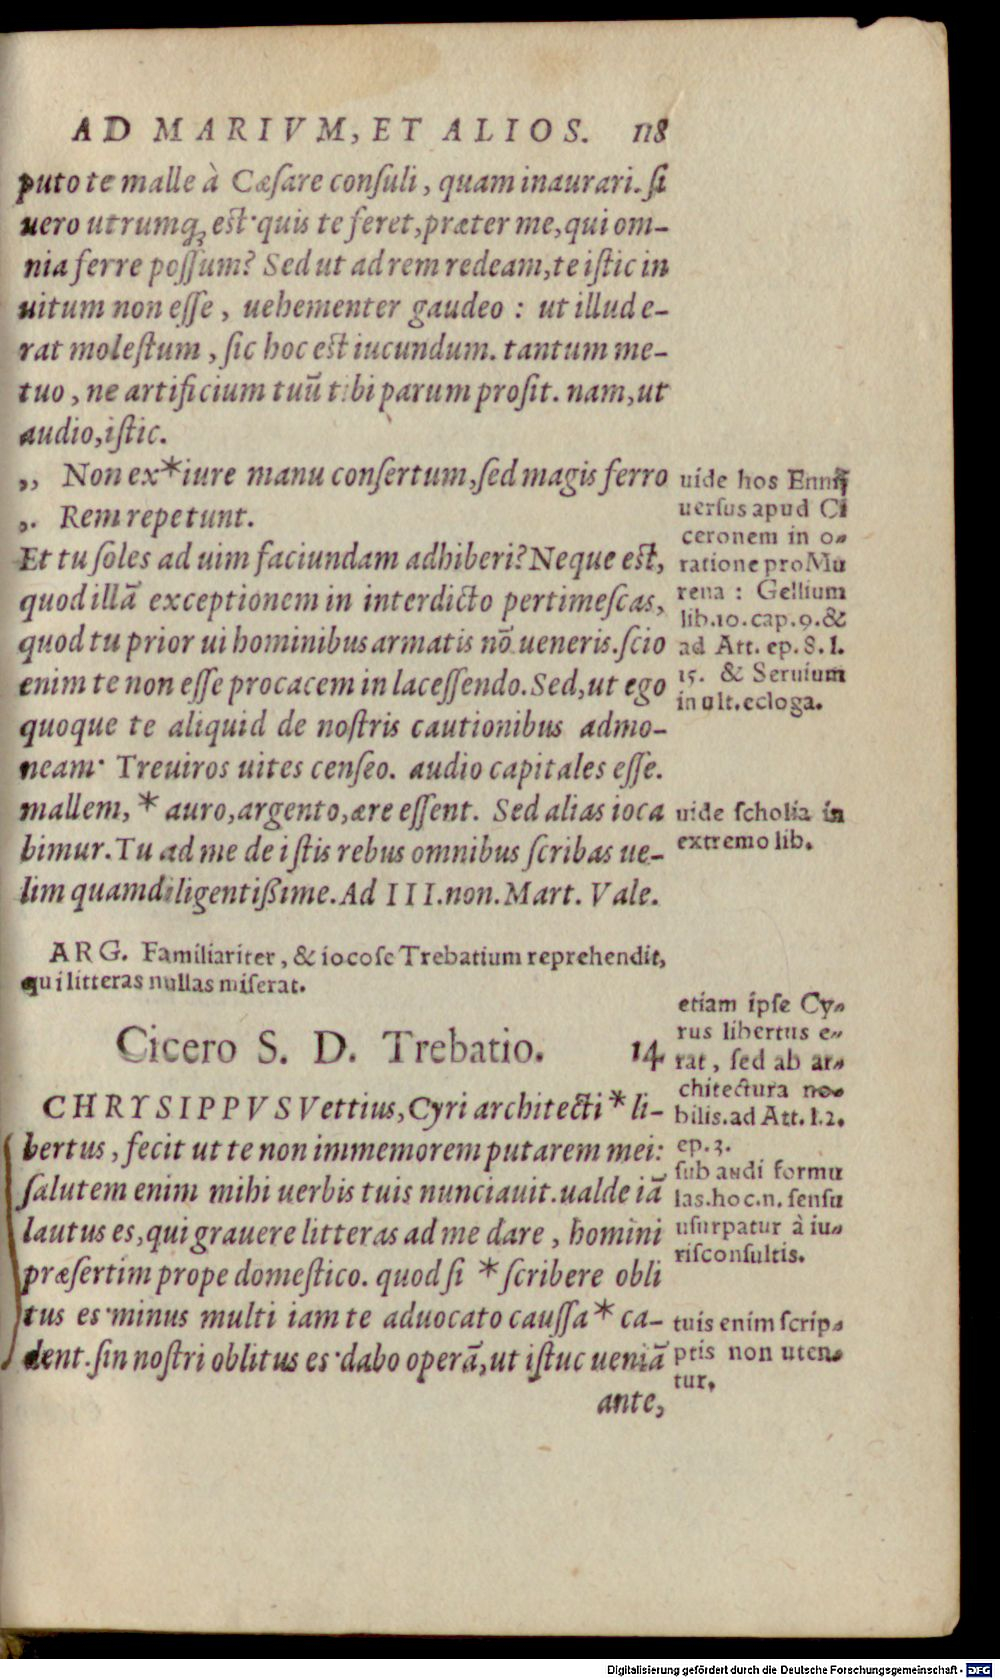 AD MARIVM, ET ALIOS. 118
puto te malle à Cæſare conſuli, quam inaurari. ſi
uero utrumq; est· quis te feret, præter me, qui om-
nia ferre poſſum? Sed ut ad rem redeam, te iſtic in
uitum non eſſe, uehementer gaudeo: ut illud e-
rat moleſtum, ſic hoc est iucundum. tantum me-
tuo, ne artificium tuū tibi parum proſit. nam, ut
audio, iſtic.
,, Non ex*iure manu conſertum, ſed magis ferro
,, Rem repetunt.
Et tu ſoles ad uim faciundam adhiberi? Neque est,
quod illā exceptionem in interdicto pertimeſcas,
quod tu prior ui hominibus armatis nō ueneris. ſcio
enim te non eſſe procacem in laceſſendo. Sed, ut ego
quoque te aliquid de noſtris cautionibus admo-
neam· Treuiros uites cenſeo. audio capitales eſſe.
mallem, * auro, argento, ære eſſent. Sed alias ioca
bimur. Tu ad me de iſtis rebus omnibus ſcribas ue-
lim quamdiligentißime. Ad III. non. Mart. Vale.
uide hos Ennij
uerſus apud Ci
ceronem in o-
ratione pro Mu
rena: Gellium
lib. 10. cap. 9. &
ad Att. ep. S. l.
15. & Seruium
in ult. ecloga.
uide ſcholia in
extremo lib.
ARG. Familiariter, & iocoſe Trebatium reprehendit,
qui litteras nullas miſerat.
Cicero S. D. Trebatio. 14
CHRYSIPPVS Vettius, Cyri architecti * li-
bertus, fecit ut te non immemorem putarem mei:
ſalutem enim mihi uerbis tuis nunciauit. ualde iā
lautus es, qui grauere litteras ad me dare, homini
præſertim prope domeſtico. quod ſi * ſcribere obli
tus es· minus multi iam te aduocato cauſſa * ca-
dent. ſin noſtri oblitus es· dabo operā, ut iſtuc ueniā
ante,
etiam ipſe Cy-
rus libertus e-
rat, ſed ab ar-
chitectura no-
bilis. ad Att. l. 2.
ep. 3.
ſub audi formu
las. hoc. n. ſenſu
uſurpatur à iu-
riſconſultis.
tuis enim ſcrip-
ptis non uten-
tur.
Digitalisierung gefördert durch die Deutsche Forschungsgemeinschaft - DFG